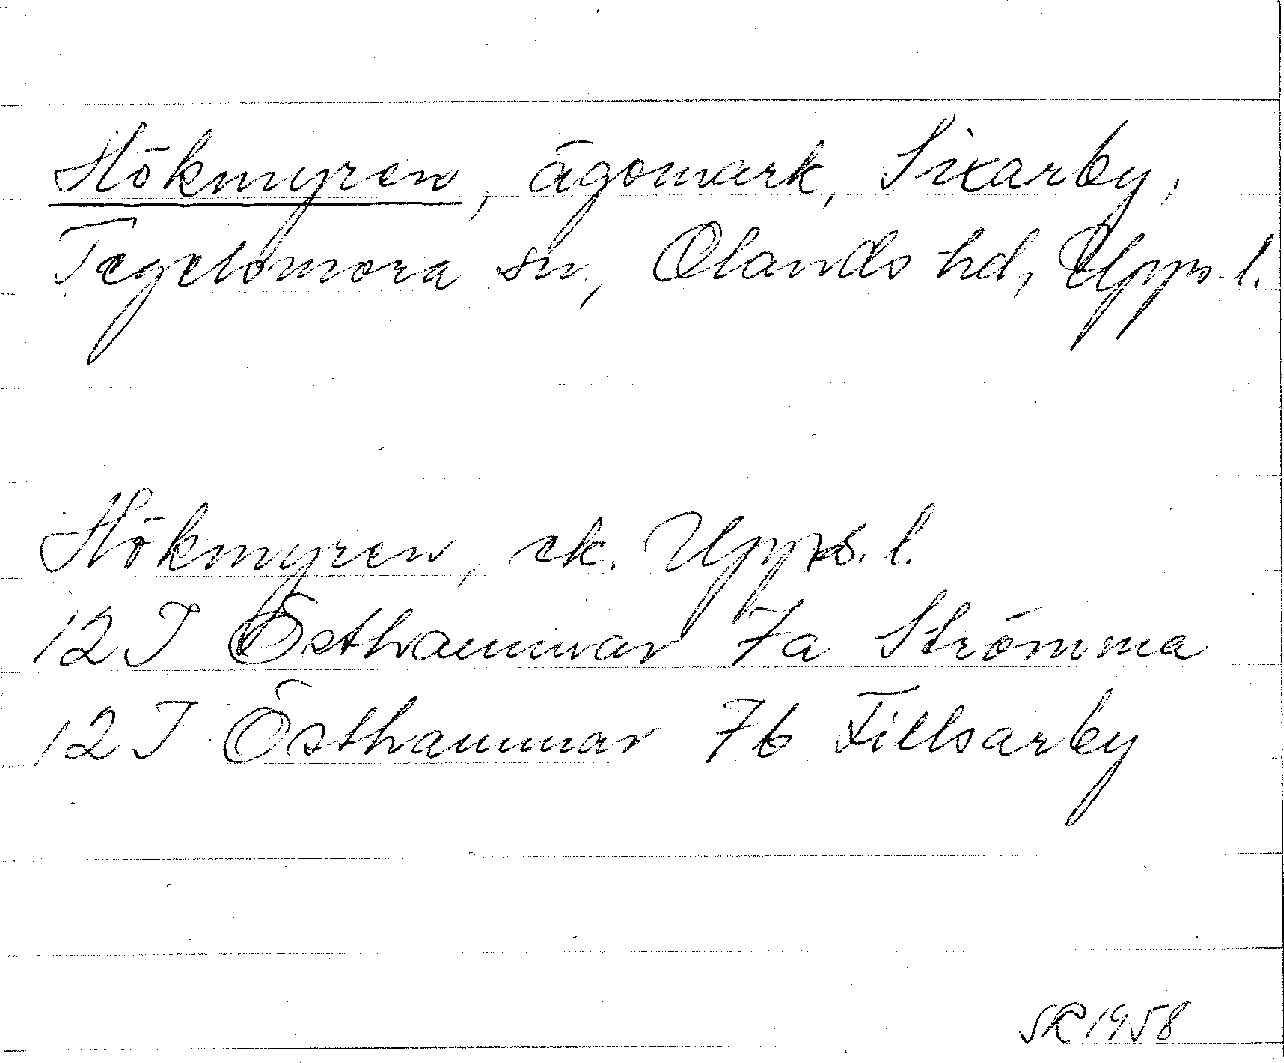 Hökmyren, ägomark, Sixarby,
Tegelsmora sn, Olands hd, Upps. l.
Hökmyren, ek. Upps. l.
12I Östhammar 7a Strömma
12I Östhammar 7b Fillsarby
SR 1958